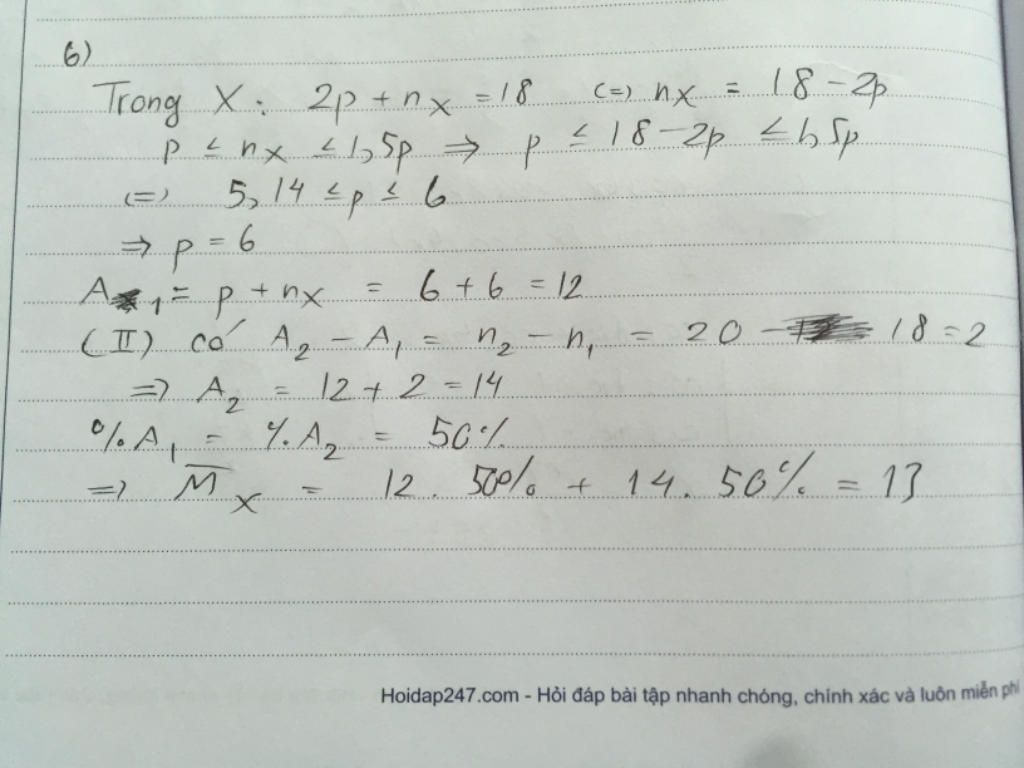 6)
Trong X: 2p + nX = 18 (=) nX = 18 - 2p
p ≤ nX ≤ 1,5p ⇒ p ≤ 18 - 2p ≤ 1,5p
(=) 5,14 ≤ p ≤ 6
⇒ p = 6
A1 = p + nX = 6 + 6 = 12
(II) có A2 - A1 = n2 - n1 = 20 - 18 = 2
=) A2 = 12 + 2 = 14
%A1 = %A2 = 50%
=) M̅X = 12. 50% + 14. 50% = 13
Hoidap247.com - Hỏi đáp bài tập nhanh chóng, chính xác và luôn miễn phí